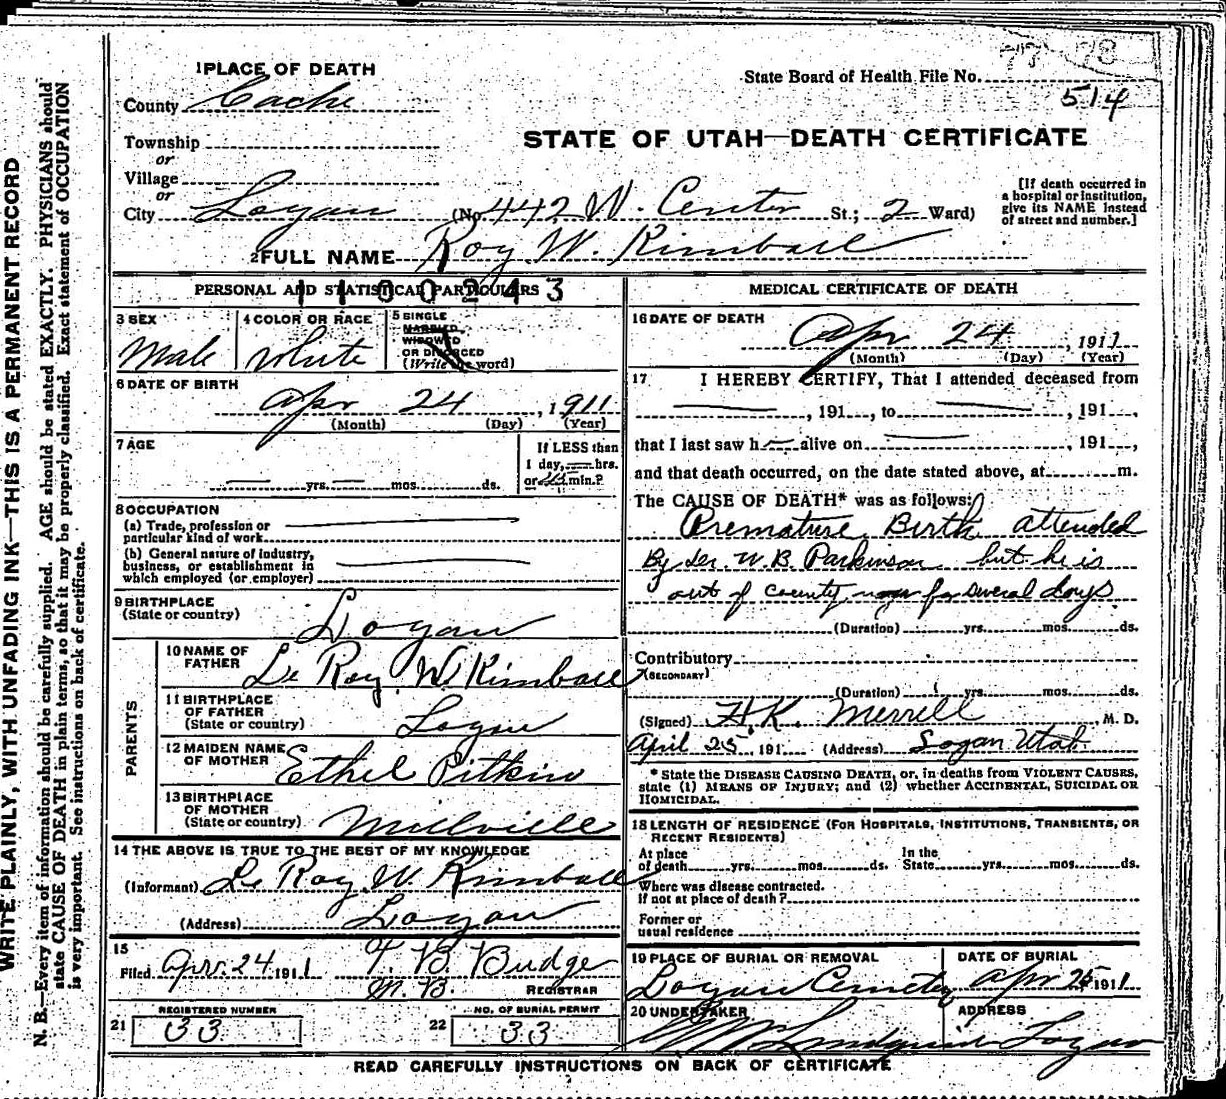 WRITE PLAINLY, WITH UNFADING INK—THIS IS A PERMANENT RECORD
N. B.—Every item of information should be carefully supplied. AGE should be stated EXACTLY. PHYSICIANS should
state CAUSE OF DEATH in plain terms, so that it may be properly classified. Exact statement of OCCUPATION
is very important. See instructions on back of certificate.
1 PLACE OF DEATH
State Board of Health File No.
514
County Cache
STATE OF UTAH—DEATH CERTIFICATE
Township
or
Village
or
City Logan (No 442 W. Center St.; 2 Ward)
[If death occurred in
a hospital or institution,
give its NAME instead
of street and number.]
2 FULL NAME Roy W. Kimball
PERSONAL AND STATISTICAL PARTICULARS
1100243
3 SEX
Male
4 COLOR OR RACE
White
5 SINGLE
MARRIED
WIDOWED
OR DIVORCED
(Write the word)
6 DATE OF BIRTH
Apr 24, 1911
(Month) (Day) (Year)
7 AGE
yrs. mos. ds.
If LESS than
1 day, hrs.
or 45 min.?
8 OCCUPATION
(a) Trade, profession or
particular kind of work
(b) General nature of industry,
business, or establishment in
which employed (or employer)
9 BIRTHPLACE
(State or country)
Logan
PARENTS
10 NAME OF
FATHER
Le Roy W Kimball
11 BIRTHPLACE
OF FATHER
(State or country)
Logan
12 MAIDEN NAME
OF MOTHER
Ethel Pitkin
13 BIRTHPLACE
OF MOTHER
(State or country)
Millville
14 THE ABOVE IS TRUE TO THE BEST OF MY KNOWLEDGE
(Informant) Le Roy W. Kimball
(Address) Logan
15
Filed Apr. 24 1911 T. B. Budge
M. B. REGISTRAR
REGISTERED NUMBER
21 33
NO. OF BURIAL PERMIT
22 33
MEDICAL CERTIFICATE OF DEATH
16 DATE OF DEATH
Apr 24, 1911
(Month) (Day) (Year)
17 I HEREBY CERTIFY, That I attended deceased from
, 191 , to , 191 ,
that I last saw h alive on , 191 ,
and that death occurred, on the date stated above, at m.
The CAUSE OF DEATH* was as follows:
Premature Birth attended
By Dr. W. B. Parkinson but he is
out of county now for several days
(Duration) yrs. mos. ds.
Contributory
(SECONDARY)
(Duration) yrs. mos. ds.
(Signed) H.K. Merrell M. D.
April 25, 191 (Address) Logan Utah
* State the DISEASE CAUSING DEATH, or, in deaths from VIOLENT CAUSES,
state (1) MEANS OF INJURY; and (2) whether ACCIDENTAL, SUICIDAL OR
HOMICIDAL.
18 LENGTH OF RESIDENCE (FOR HOSPITALS, INSTITUTIONS, TRANSIENTS, OR
RECENT RESIDENTS)
At place
of death yrs. mos. ds.
In the
State yrs. mos. ds.
Where was disease contracted.
If not at place of death?
Former or
usual residence
19 PLACE OF BURIAL OR REMOVAL
Logan Cemetery
DATE OF BURIAL
Apr 25 1911
20 UNDERTAKER
ADDRESS
Logan
READ CAREFULLY INSTRUCTIONS ON BACK OF CERTIFICATE